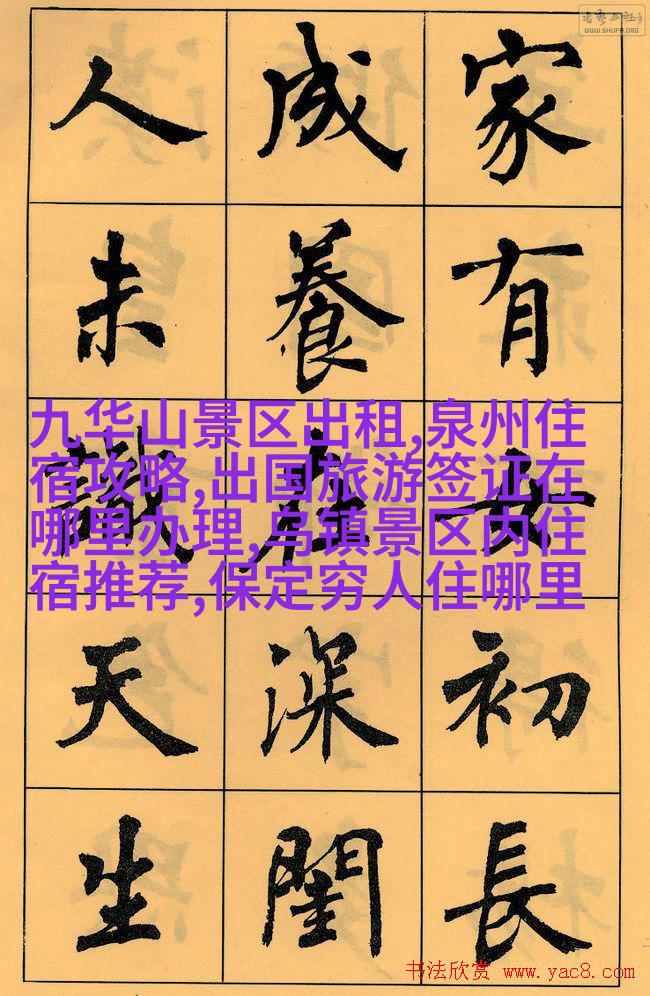 WWW.SHUFA.ORG
家有女初長
成養在深閨
人未識天生
九华山景区出租,泉州住
宿攻略,出国旅游签证在
哪里办理,乌镇景区内住
宿推荐,保定穷人住哪里
书法欣赏 www.yac8.com